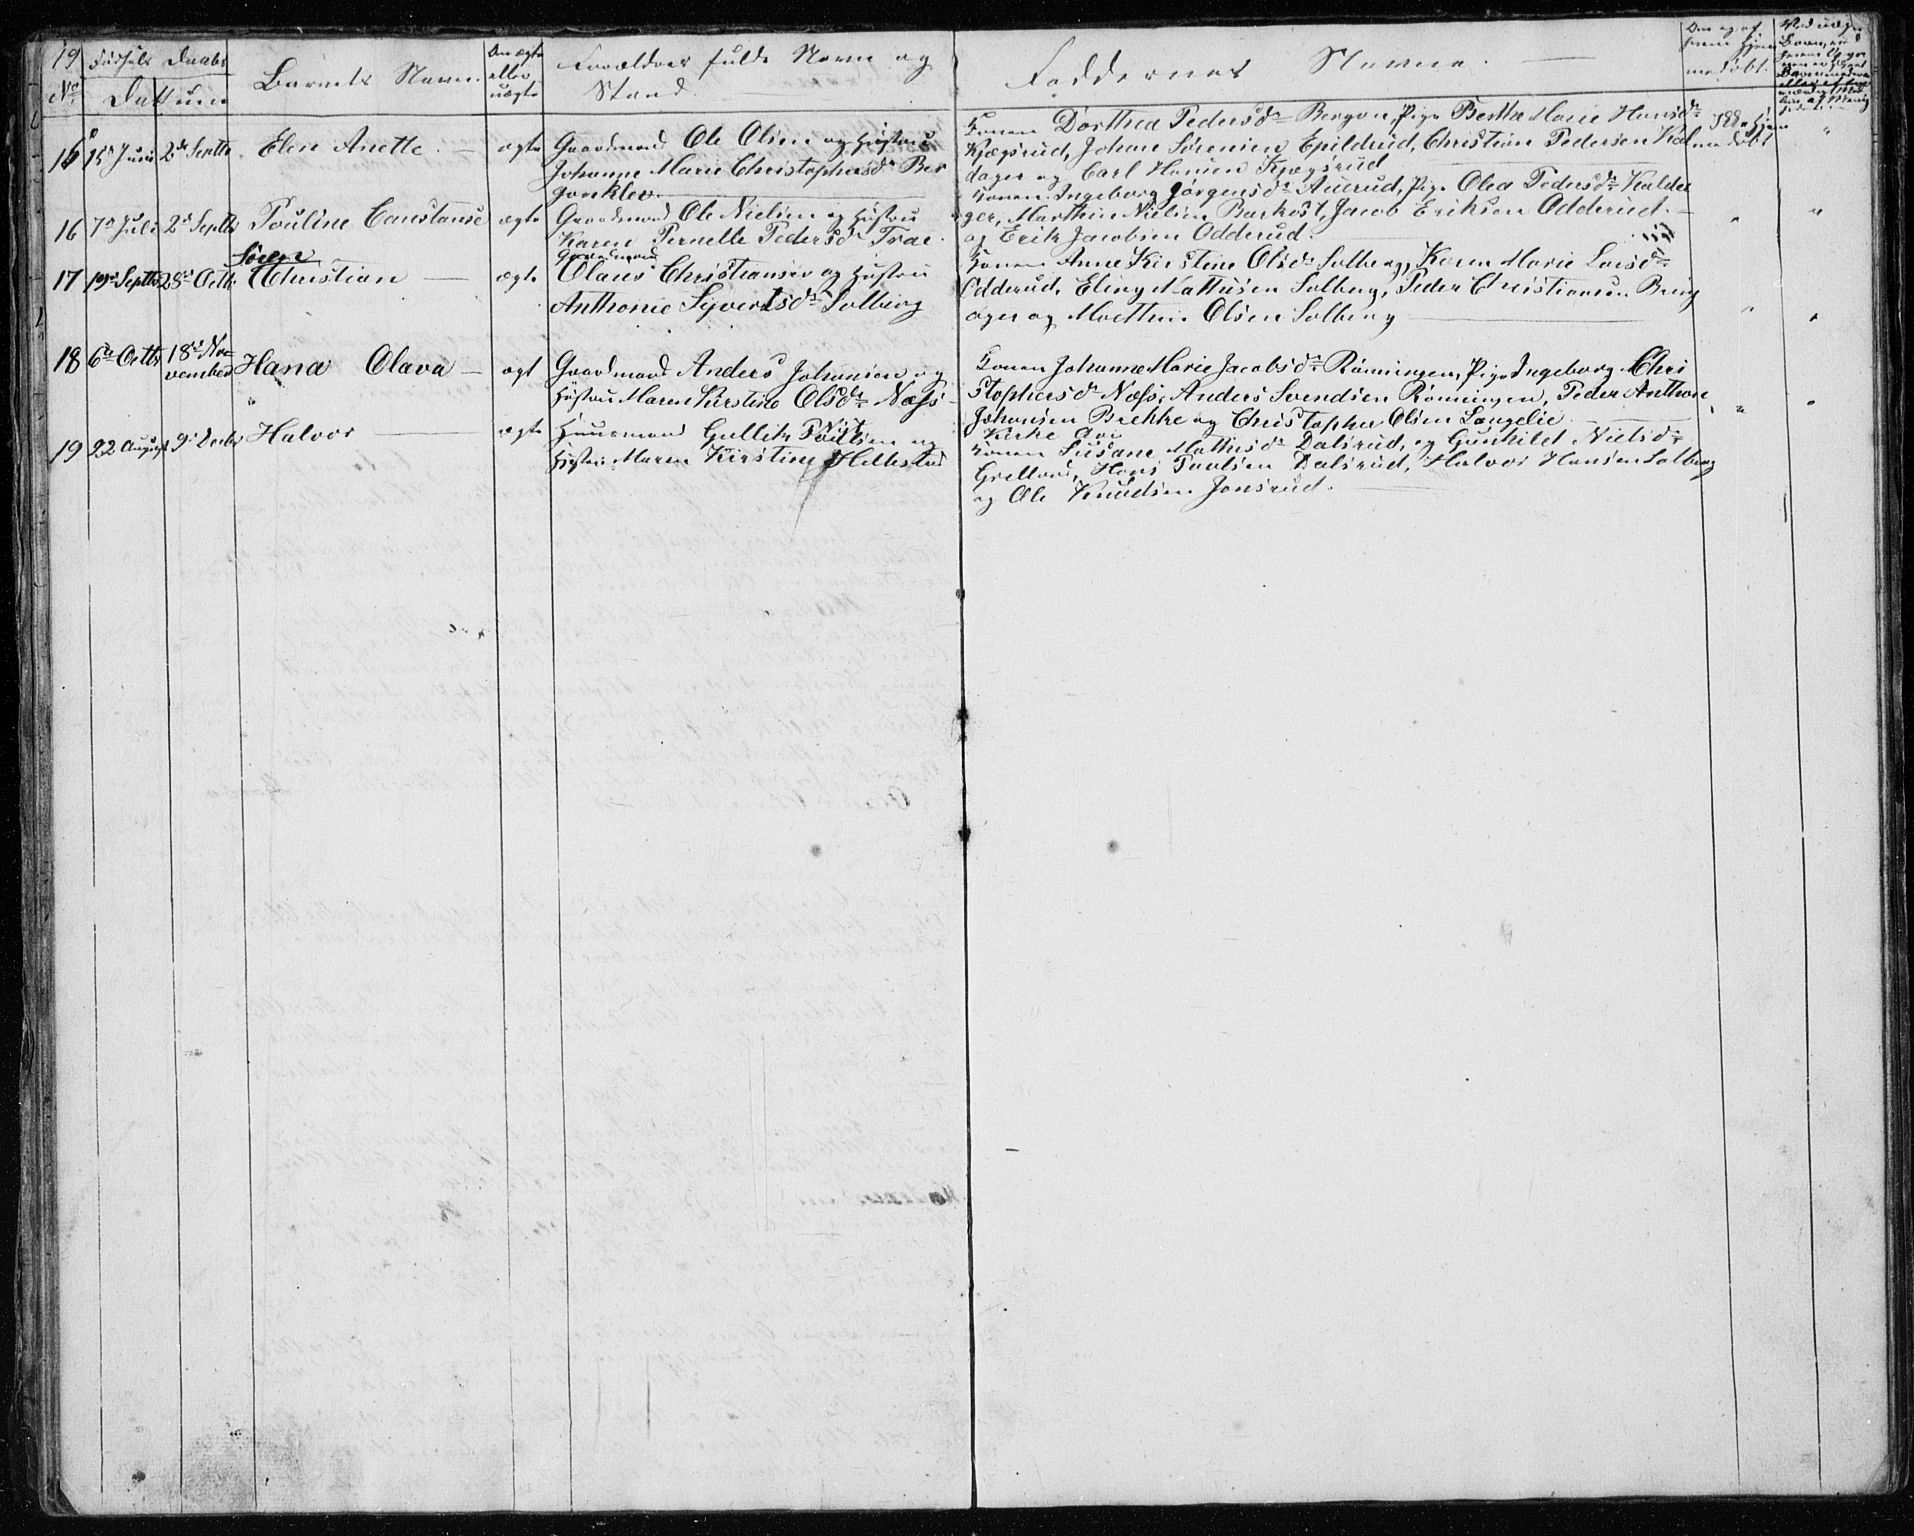 19
No
Fødsels Daabs
Dattum
Barnets Navn.
Om ægte
eller
uægte
Forældres fulde Navn og
Stand
Faddernes Navne.
Om og af
hvem hjem
medøbt.
16 15de Juni 2de Septbr Elen Anette. — ægte
Gaardmand Ole Olsen og Hustru
Johanne Marie Christophersdr Ber
Konen Dorthea Pedersdr Bergan, Pige Berthe Marie Hansdr
Kjøgsrud, Johan Sørensen Epildrud, Christian Pedersen Kal
dager og Carl Hansen Kjøgsrud
16 7de Juli 2de Septbr Pouline Constanse ægte
Gaardmand Ole Nielsen og Hustru
Karen Pernelle Pedersdr Traae.
Konen Ingeborg Jørgensdr Aaerud, Pige Olea Pedersdr Kalda
ger, Marthin Nielsen Barkost, Jacob Eriksen Odderud.
og Erik Jacobsen Odderud.
Søren
17 19de Septbr 28de Octbr Christian — ægte
Gaardmand
Olaus Christiansen og Hustru
Anthonie Syvertsdr Solberg
Konen Anne Kirstine Olsdr Solberg, Karen Marie Larsdr
Odderud, Eling Mathisen Solberg, Peder Christiansen Bring
ager og Marthin Olsen Solberg
18 6te Octbr 18de No
vember Hana Olava — ægt
Gaardmand Anders Johansen og
Hustru Maren Kirstine Olsdr Næss
Konen Johanne Marie Jacobsdr Rønningen, Pige Ingeborg Chri
stophersdr Næss, Anders Svendsen Rønningen, Peder Anthon
Johansen Brekke og Christopher Olsen Langelie
19 22 August 9de Decbr Halvor — ægte
Huusmand Gullik Poulsen og
Hustru Maren Kirstine Hellestad
Konen Susane Mathisdr Dalsrud, og Gunhild Nielsdr
Grelland, Hans Paulsen Dalsrud, Halvor Hansen Solberg
og Ole Knudsen Jonsrud.